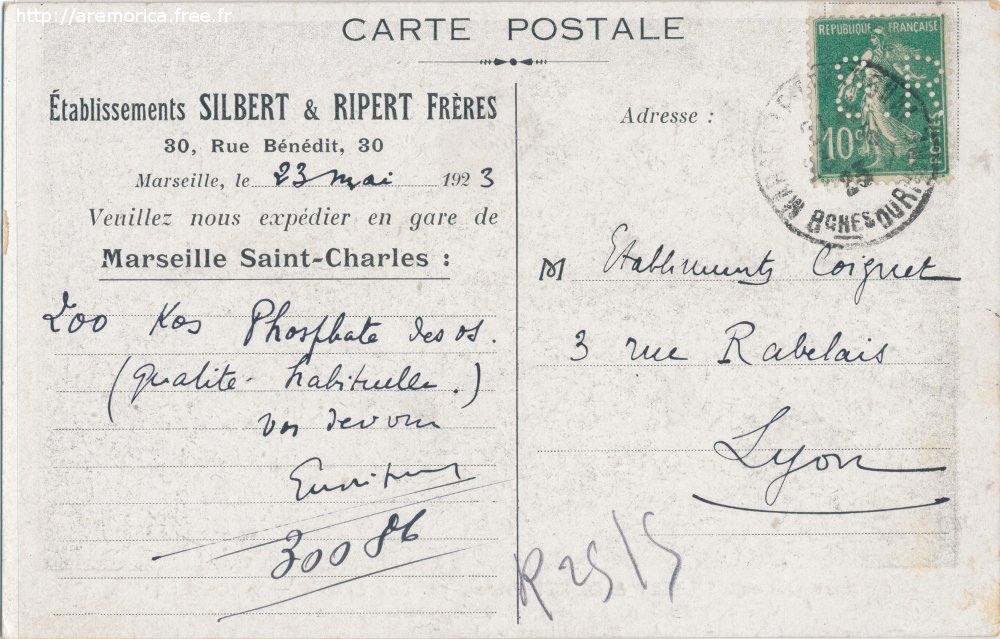 http://aremorica.free.fr
CARTE POSTALE
Établissements SILBERT & RIPERT FRÈRES
30, Rue Bénédit, 30
Marseille, le 23 mai 1923
Veuillez nous expédier en gare de
Marseille Saint-Charles :
200 Kos Phosphate des os.
(qualité habituelle.)
30086
Adresse :
REPUBLIQUE FRANÇAISE
10c
POSTES
23
BCHES DU R
M Etabliments Coignet
3 rue Rabelais
Lyon
R 25/5